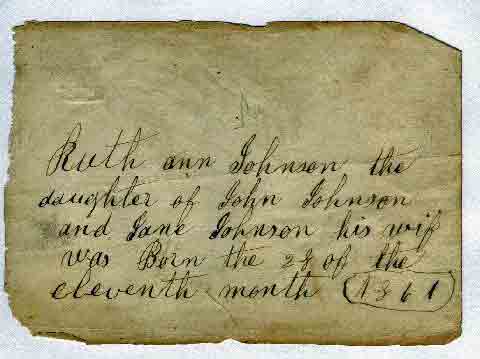 Ruth ann Johnson the
daughter of John Johnson
and Jane Johnson his wif
was Born the 28 of the
eleventh month 1861